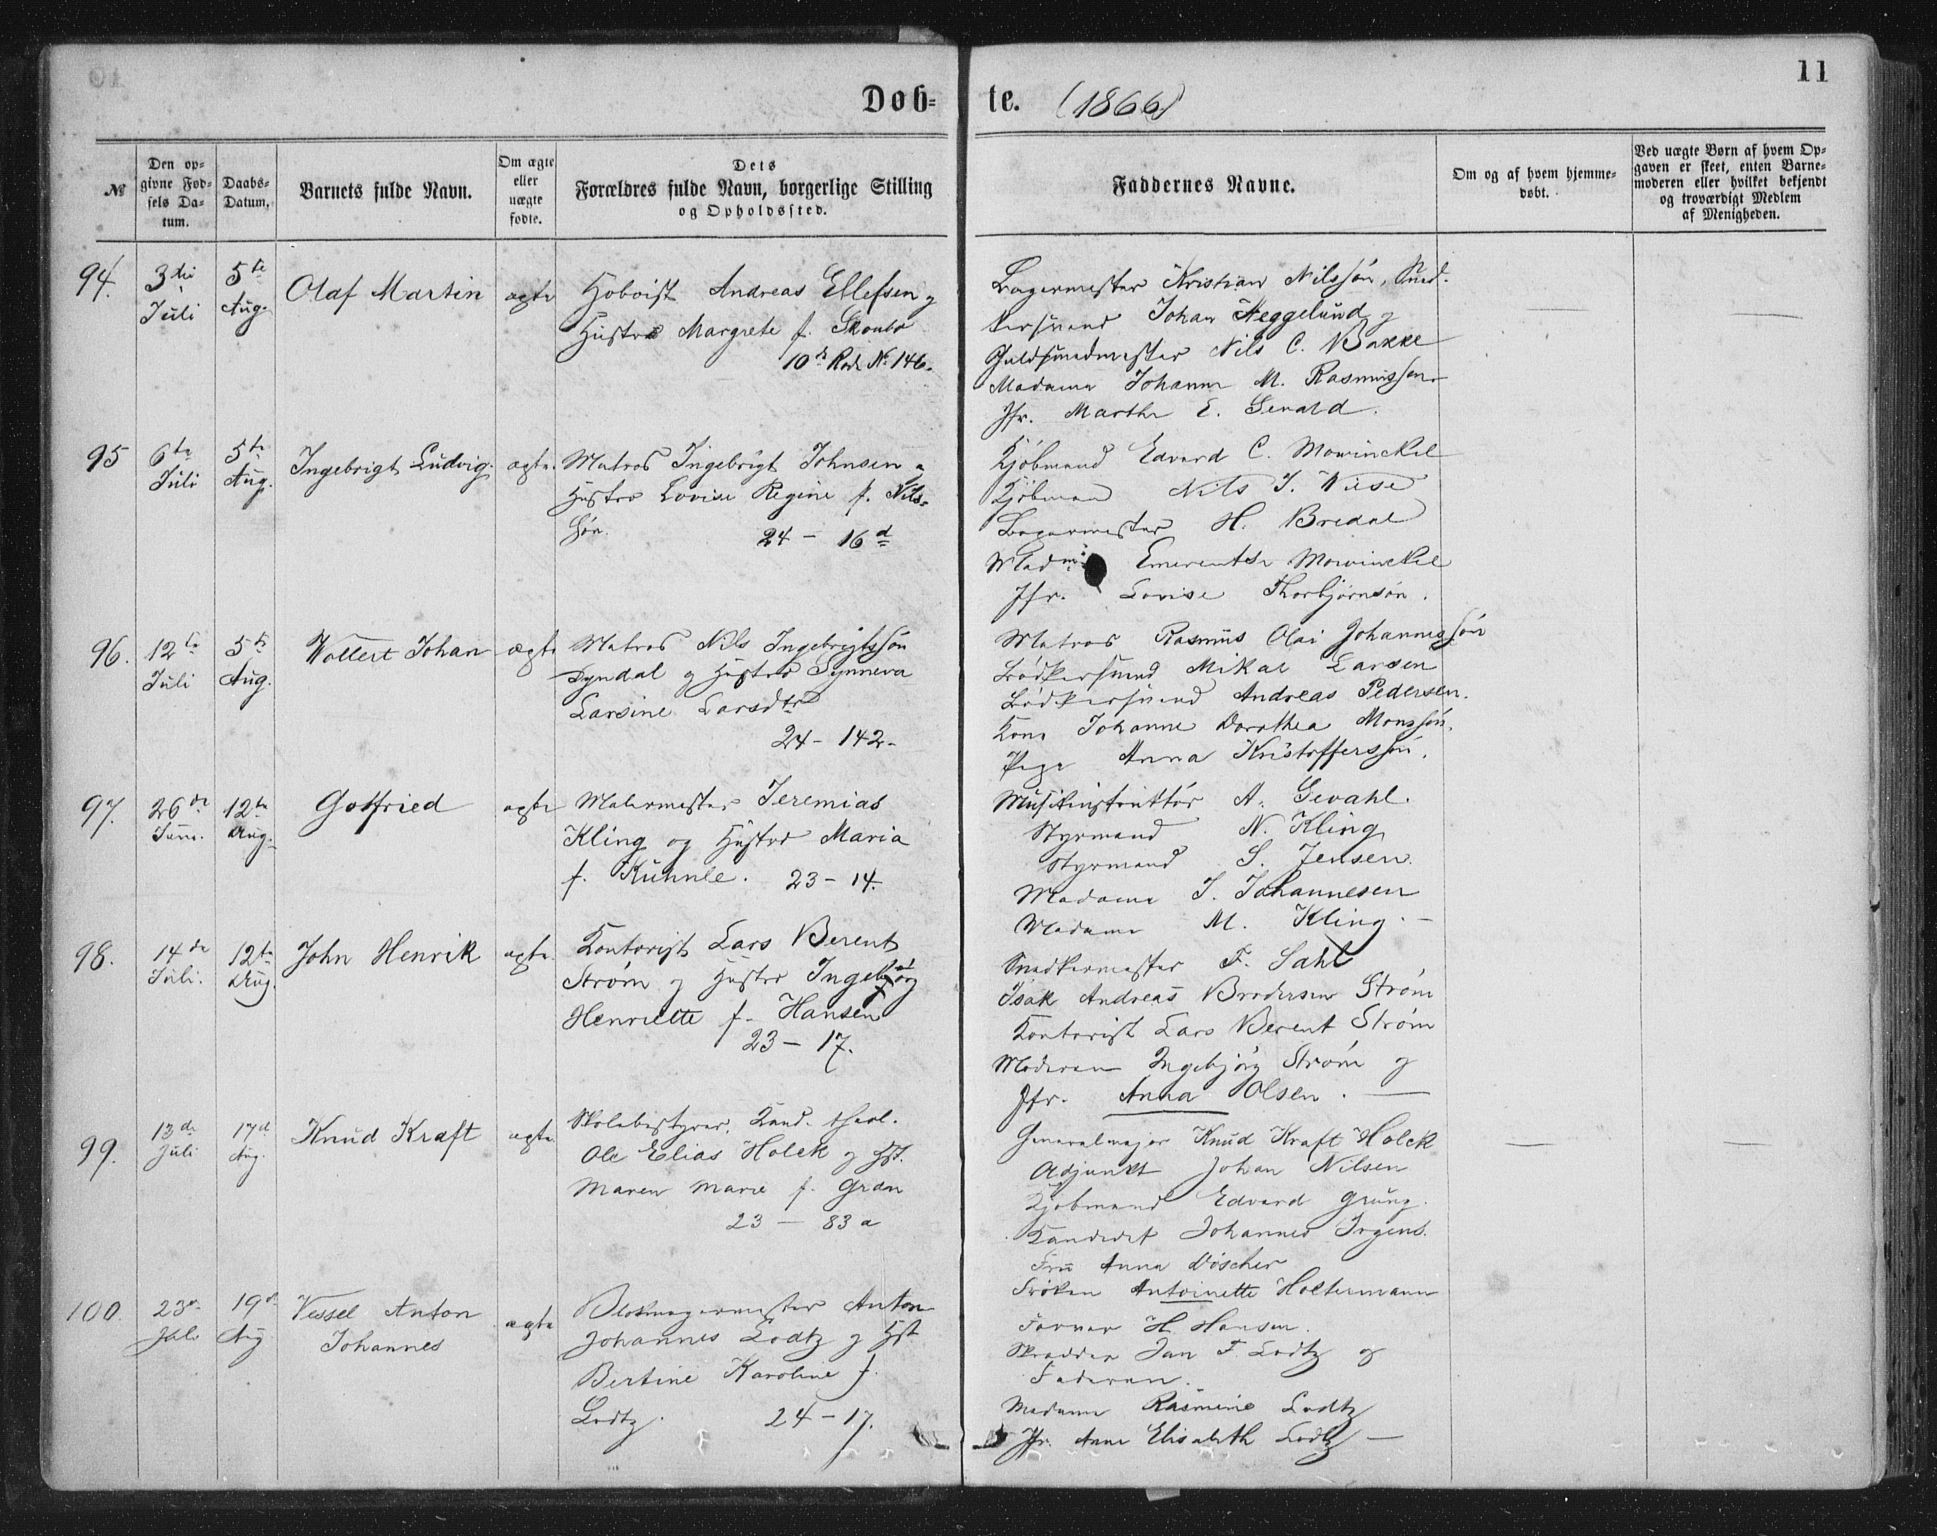 11
Døb-
te. (1866)
№
Den op-
givne Fød-
sels Da-
tum.
Daabs-
Datum.
Barnets fulde Navn.
Om ægte
eller
uægte
fødte.
Dets
Forældres fulde Navn, borgerlige Stilling
og Opholdssted.
Faddernes Navne.
Om og af hvem hjemme-
døbt.
Ved uægte Børn af hvem Op-
gaven er skeet, enten Barne-
moderen eller hvilket bekjendt
og troværdigt Medlem
af Menigheden.
94.
3die
Juli
5te
Aug.
Olaf Martin
ægte
Hoboist Andreas Ellefsen og
Hustro Margrete f.
10de Rode No 146.
Bagermester Kristian Nilssøn, Sned-
kersvend Johan Heggelund og
Guldsmedmester Nils C. Bakke
Madame Johanne M. Rasmussen
Jfr. Marthe E. Gevald.
95
6te
Juli
5te
Aug.
Ingebrigt Ludvig
ægte.
Matros Ingebrigt Johnsen og
Hustro Lovise Regine f. Nils-
søn.
24 – 16d
Kjøbmand Edvard C. Mowinckel
Kjøbman Nils J. Wiese
Bagermester H. Bredal
Mad. Emerentse Mowinckel
Jfr. Lovise Thorbjørnsøn.
96.
12te
Juli
5te
Aug.
Wollert Johan
ægte
Matros Nils Ingebrigtssøn
Dyndal og Hustro Synneva
Larsine Larsdtr
24 – 142.
Matros Rasmus Olai Johannessøn
Bødkersvend Mikal Larsen
Bødkersvend Andreas Pedersen.
Kone Johanne Dorothea Monssøn.
Pige Anna Kristofferssøn.
97.
26de
Juni.
12te
Aug.
Gotfried
ægte
Malermester Jeremias
Kling og Hustro Maria
f. Kühnle. 23 – 14.
Musikinstruktør A. Gevahl.
Styrmand N. Kling
Styrmand S. Jensen.
Madame J. Johannesen
Madame M. Kling. –
98.
14de
Juli.
12te
Aug.
John Henrik
ægte.
Kontorist Lars Berent
Strøm og Hustro Ingebjørg
Henriette f. Hansen
23 – 17.
Snedkermester F. Sahl
Isak Andreas Brodersen Strøm
Kontorist Lars Berent Strøm
Moderen Ingebjørg Strøm og
Jfr. Anna Olsen. —
99.
13de
Juli
17d
Aug.
Knud Kraft
ægte
Skolebestyrer, Kand. theol.
Ole Elias Holck og Hst.
Maren Marie f. Gran
23 – 83a
Generalmajor Knud Kraft Holck
Adjunkt Johan Nilsen
Kjøbmand Edvard Grung.
Kandidat Johannes Irgens.
Fru Anna Döscher
Frøken Antoinette Holtermann
100.
23de
Juli
19de
Aug
Vessel Anton
Johannes
ægte
Blokmagermester Anton
Johannes Lodtz og Hst
Bertine Karoline f.
Lodtz. 24 – 17.
Farver H. Hansen.
Skrædder Jan F. Lodtz og
Faderen.
Madame Rasmine Lodtz
Jfr. Anne Elisabeth Lodtz —